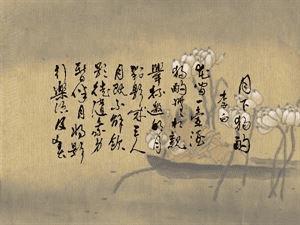 月下獨酌
李白
花間一壺酒
獨酌無相親
舉杯邀明月
對影成三人
月既不解飲
影徒隨我身
暫伴月將影
行樂須及春